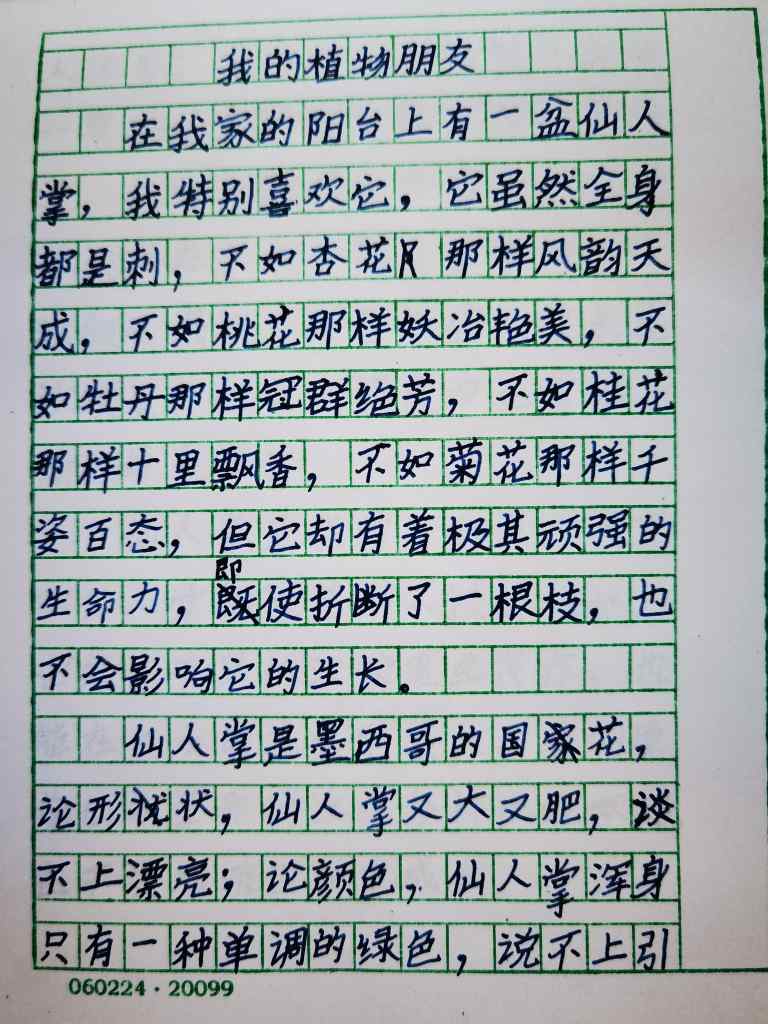 我的植物朋友
在我家的阳台上有一盆仙人
掌，我特别喜欢它，它虽然全身
都是刺，不如杏花那样风韵天
成，不如桃花那样妖冶艳美，不
如牡丹那样冠群绝芳，不如桂花
那样十里飘香，不如菊花那样千
姿百态，但它却有着极其顽强的
生命力，即使折断了一根枝，也
不会影响它的生长。
仙人掌是墨西哥的国家花，
论形状，仙人掌又大又肥，谈
不上漂亮；论颜色，仙人掌浑身
只有一种单调的绿色，说不上引
060224·20099